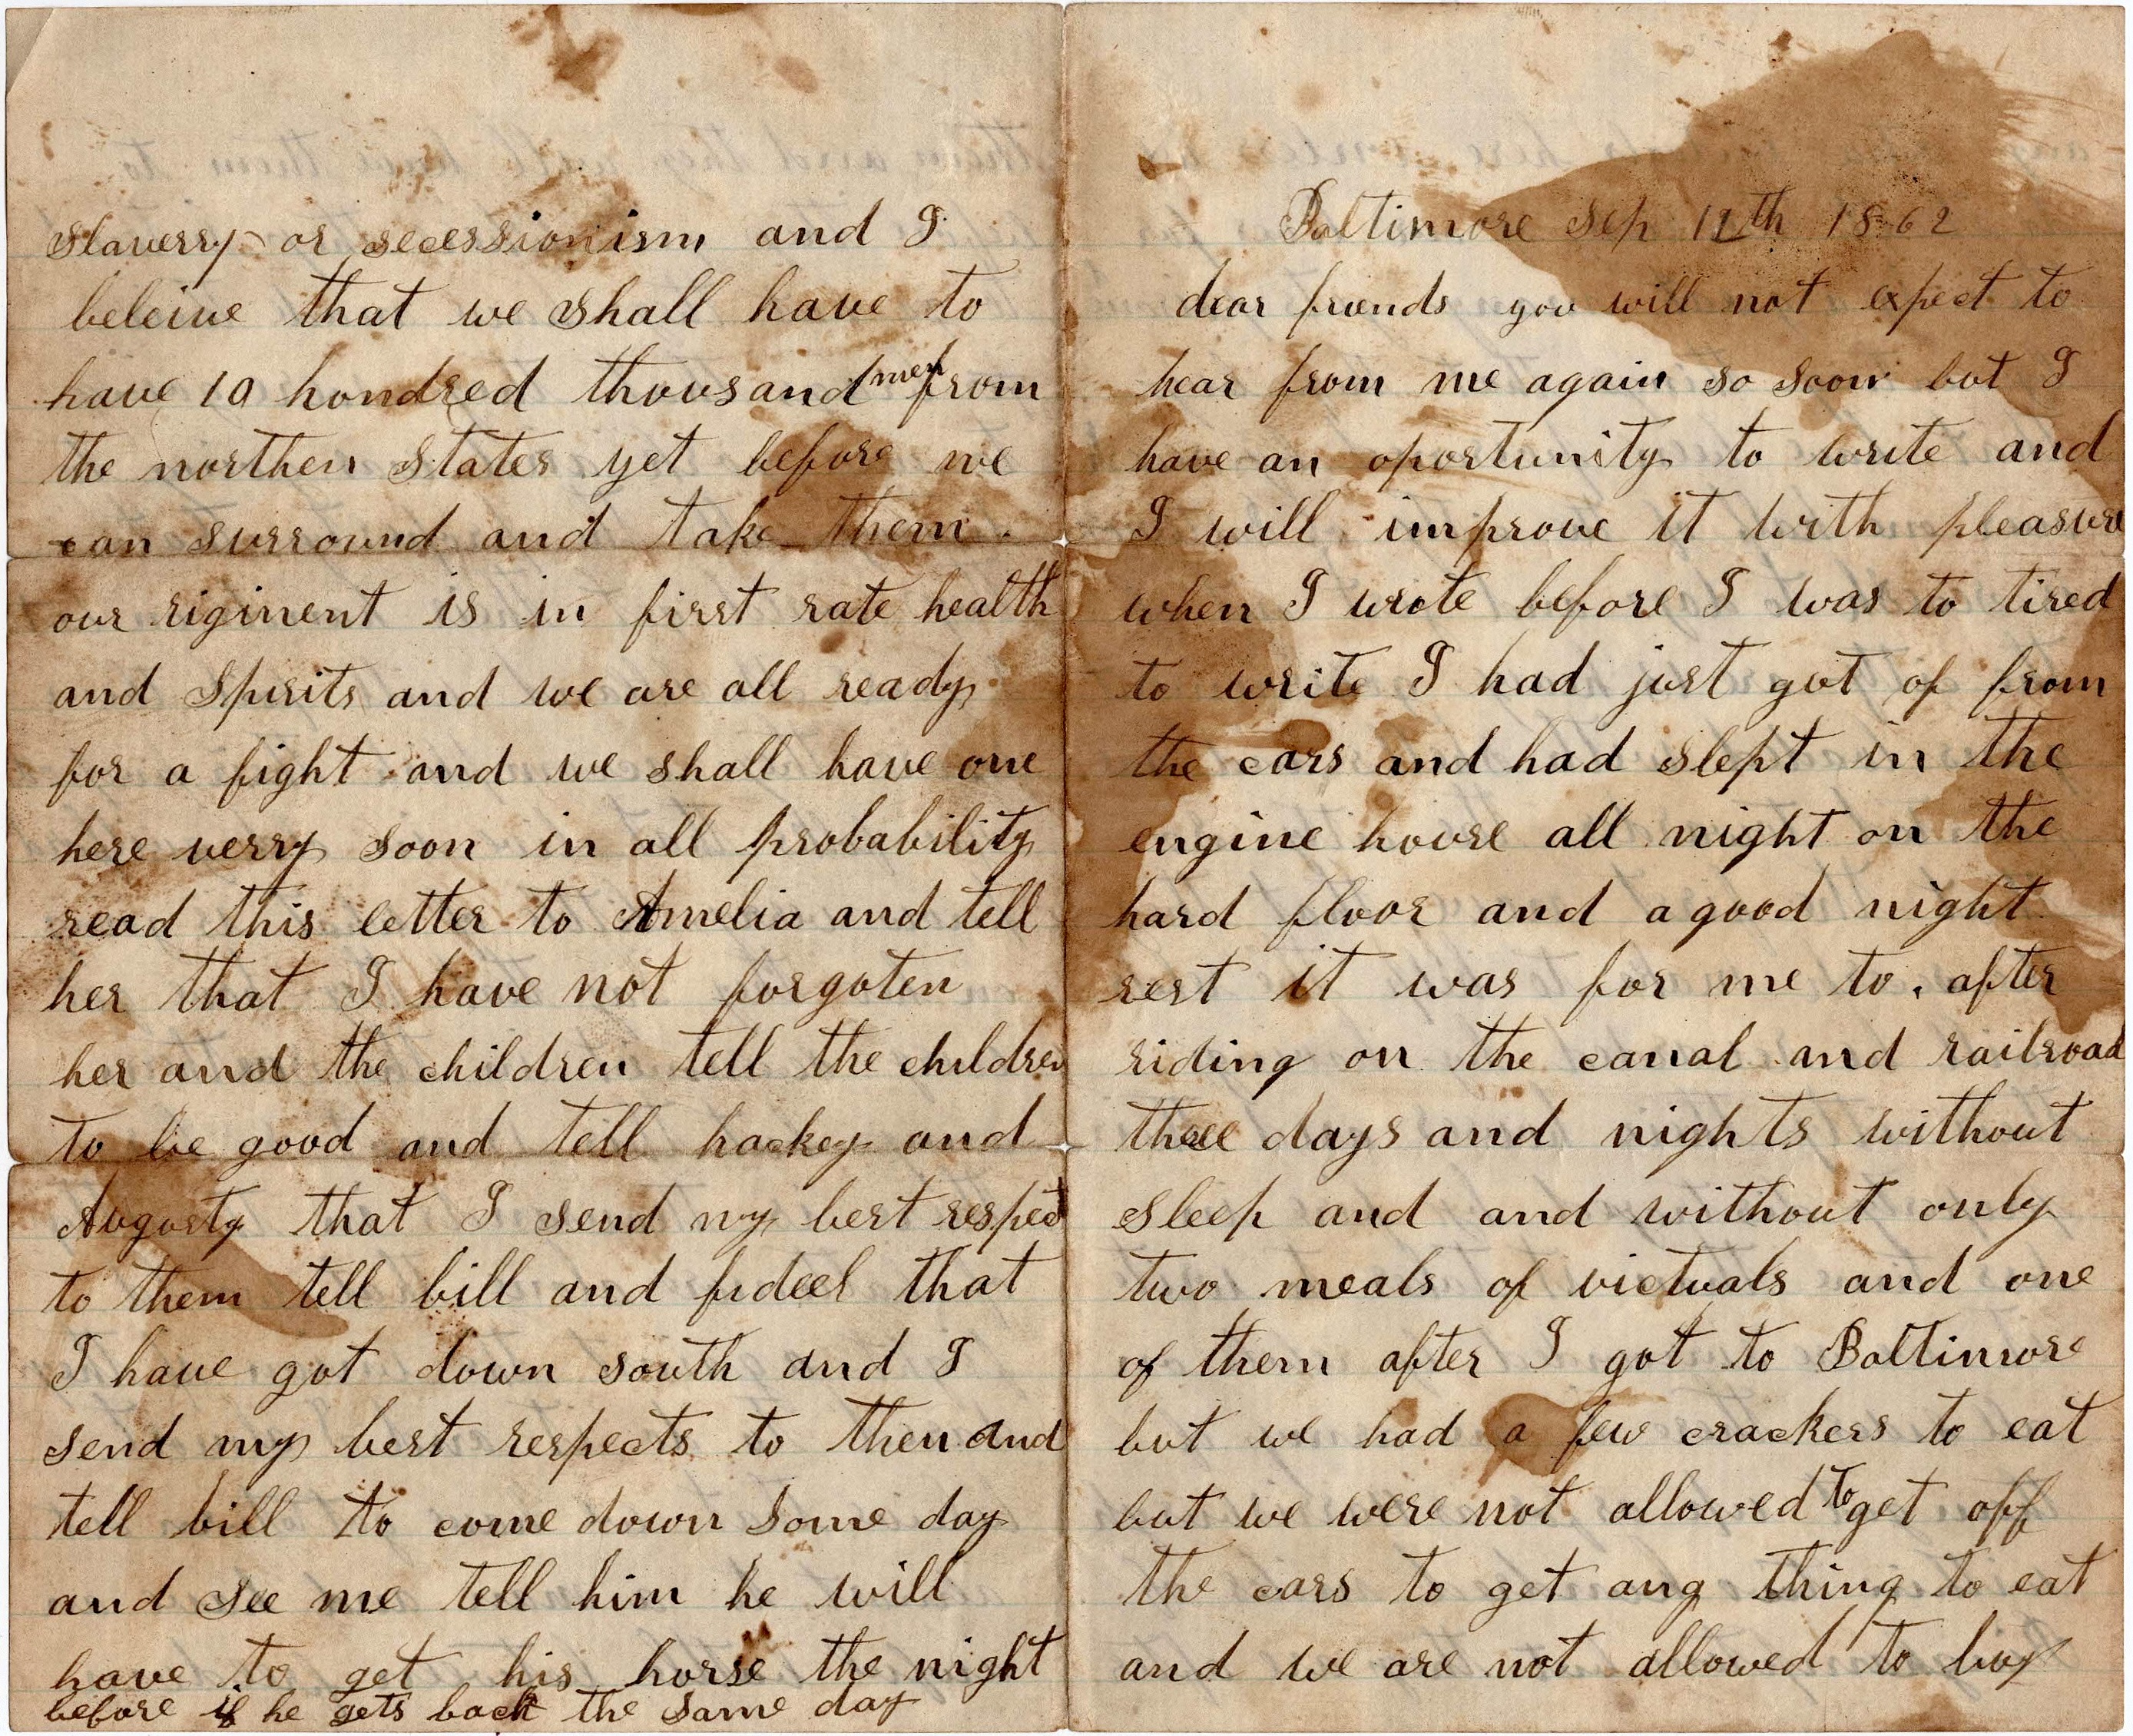 Baltimore Sep 12th 1862
dear friends you will not expect to
hear from me again so soon but I
have an oportunity to write and
I will improve it with pleasure
when I wrote before I was to tired
to write I had just got of from
the cars and had slept in the
engine house all night on the
hard floor and a good night
rest it was for me to. after
riding on the canal and railroad
three days and nights without
sleep and and without only
two meals of victuals and one
of them after I got to Baltimore
but we had a few crackers to eat
but we were not allowed to get off
the cars to get any thing to eat
and we are not allowed to buy
slaverry or secessionism and I
beleive that we shall have to
have 10 hondred thousand men from
the northen states yet before we
can surround and take them.
our rigiment is in first rate health
and spirits and we are all ready
for a fight and we shall have one
here verry soon in all probability
read this letter to Amelia and tell
her that I have not forgoten
her and the children tell the children
to be good and tell hackey and
Augusty that I send my best respect
to them tell bill and fideel that
I have got down south and I
send my best respects to then and
tell bill to come down some day
and see me tell him he will
have to get his horse the night
before if he gets back the same day